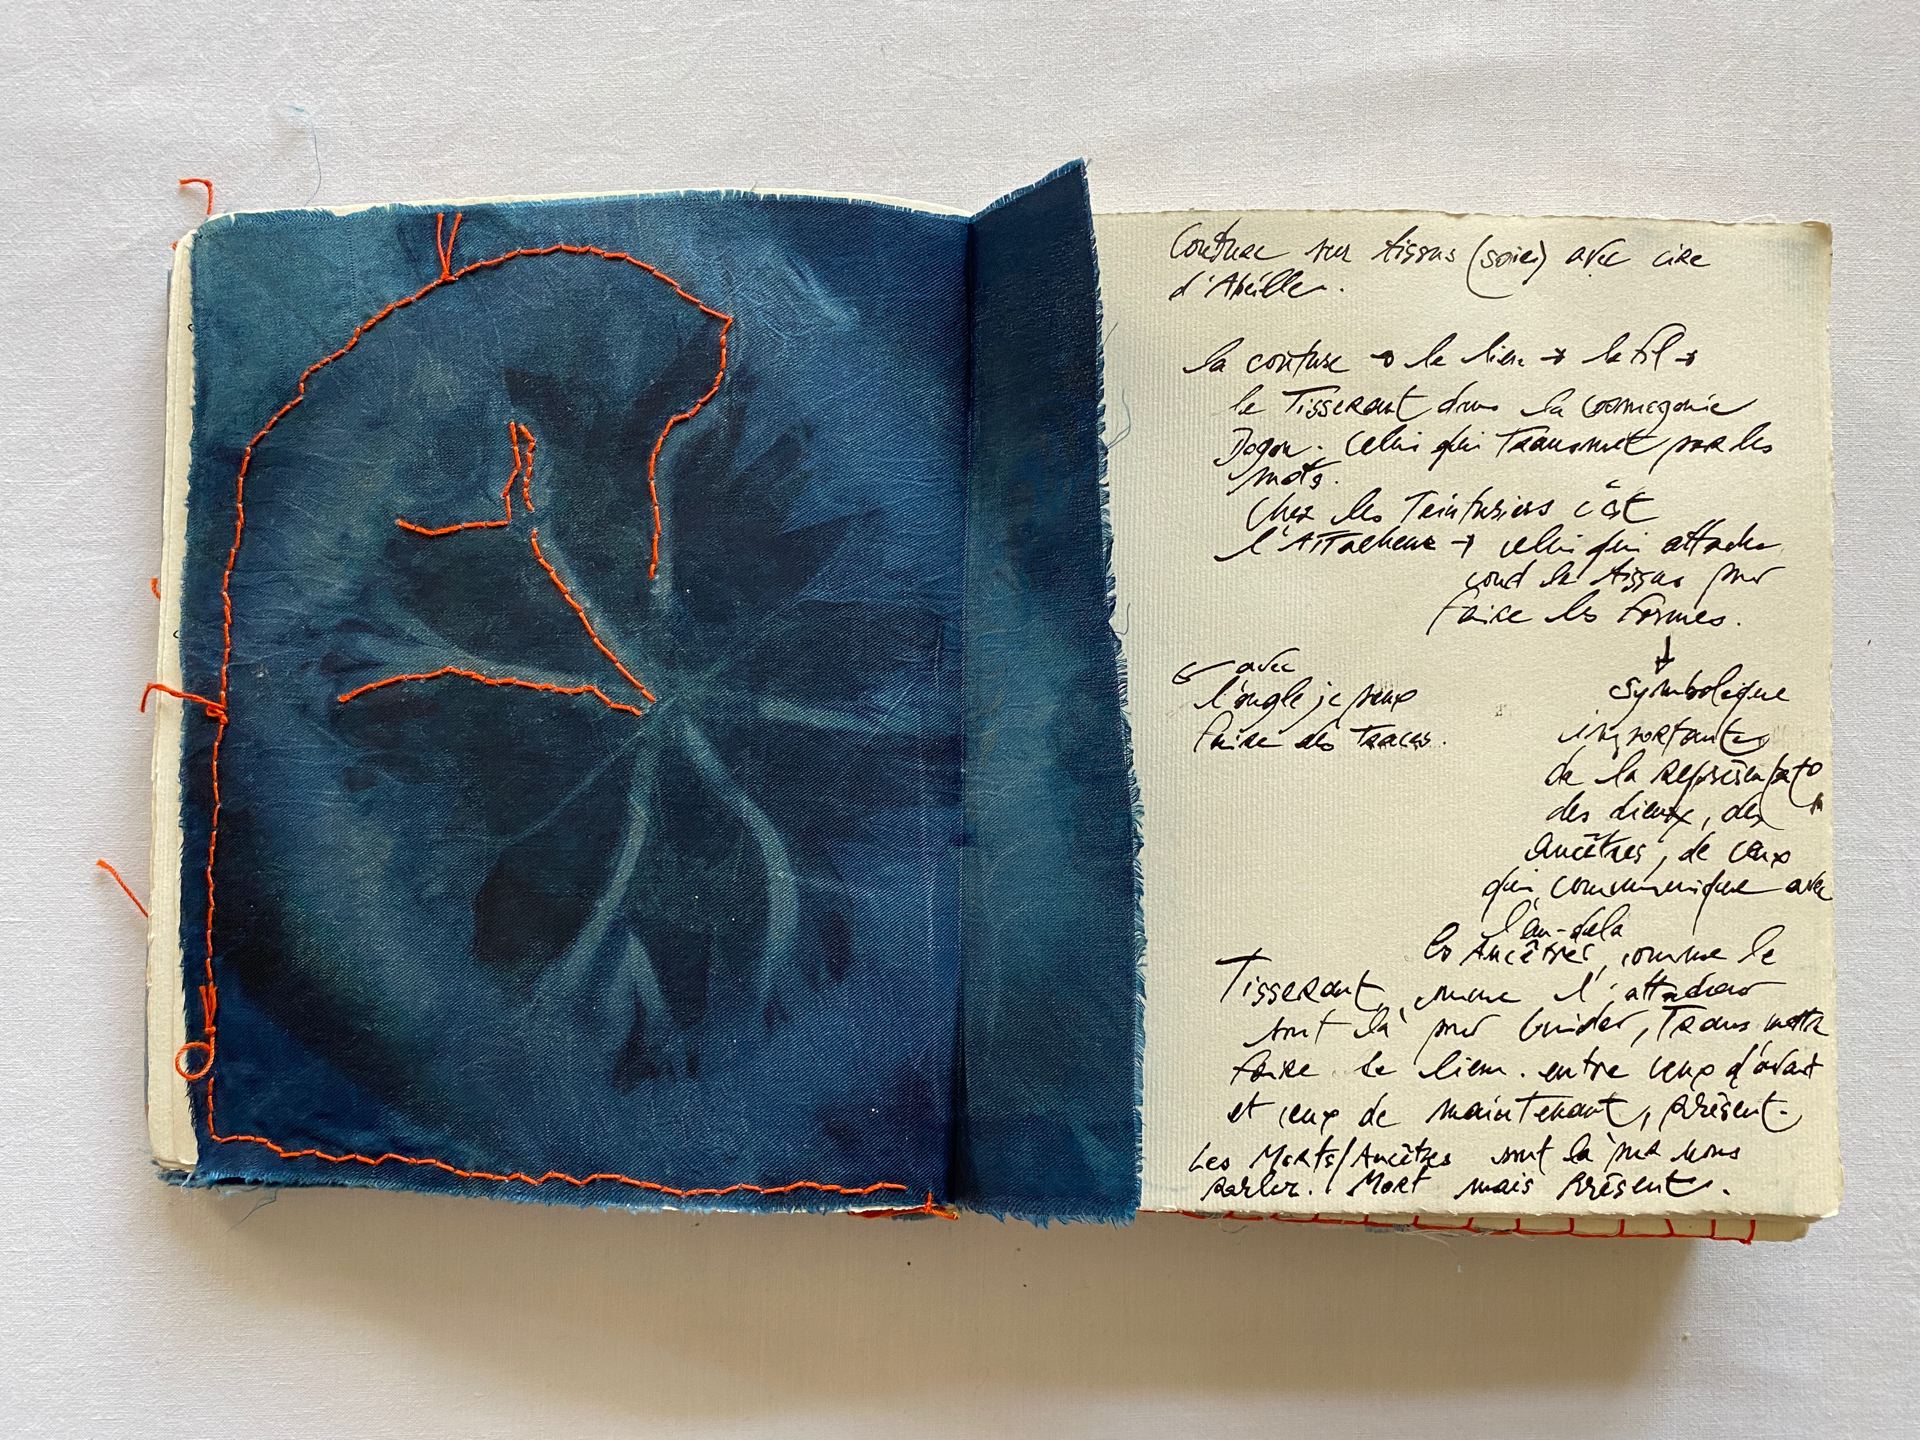 Couture sur tissus (soie) avec cire
d'Abeille.
la couture → le lien → le fil →
le Tisserant dans la cosmogonie
Dogon. Celui qui Transmet par les
mots.
Chez les Teinturiers c'est
l'Attacheur → celui qui attache
coud le tissus pour
faire les formes.
↓
← avec
l'ongle je peux
faire des Traces.
symbolique
importante
de la représentato
des dieux, des
Ancêtres, de ceux
qui communique avec
l'au-dela
les Ancêtres, comme le
Tisserant, comme l'attacheur
sont là pour Guider, Transmettre
faire le lien. entre ceux d'avant
et ceux de maintenant, présent.
Les Morts/Ancêtres sont là pour nous
parler. Mort mais présent.